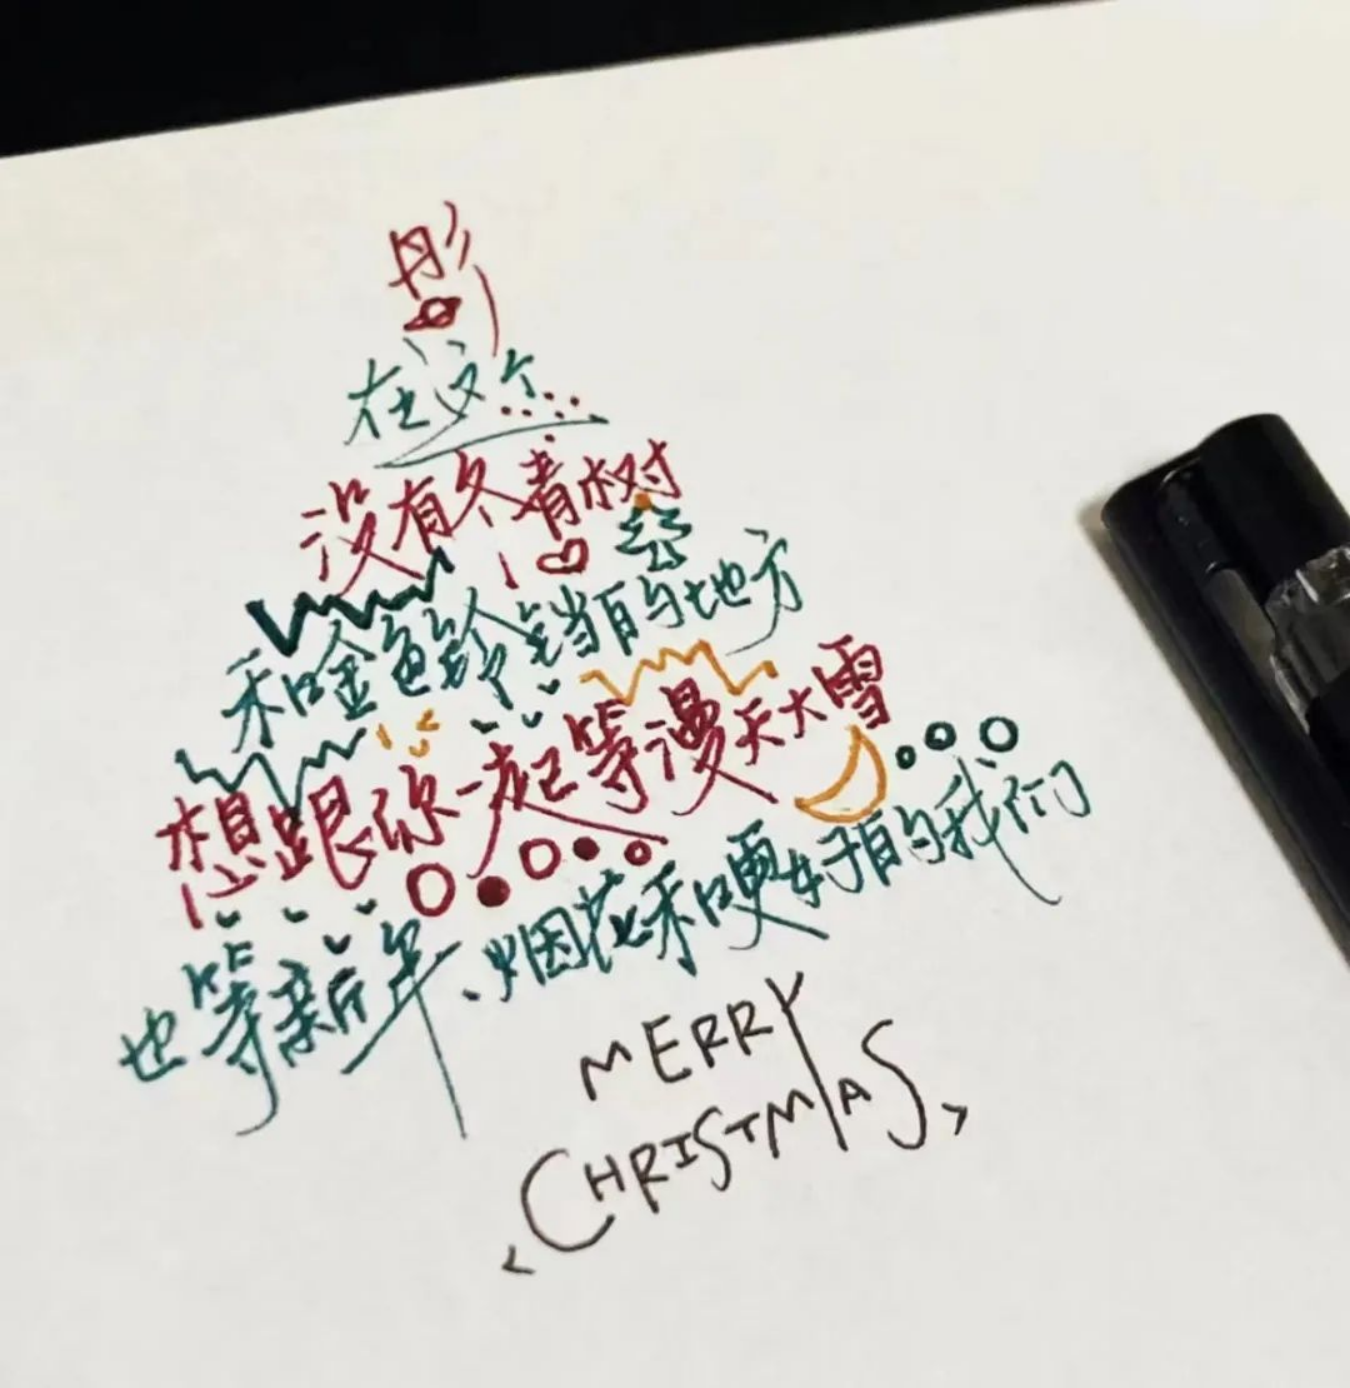 彤
在这个
没有冬青树
和金色铃铛的地方
想跟你一起等漫天大雪
也等新年、烟花和更好的我们
MERRY
CHRISTMAS